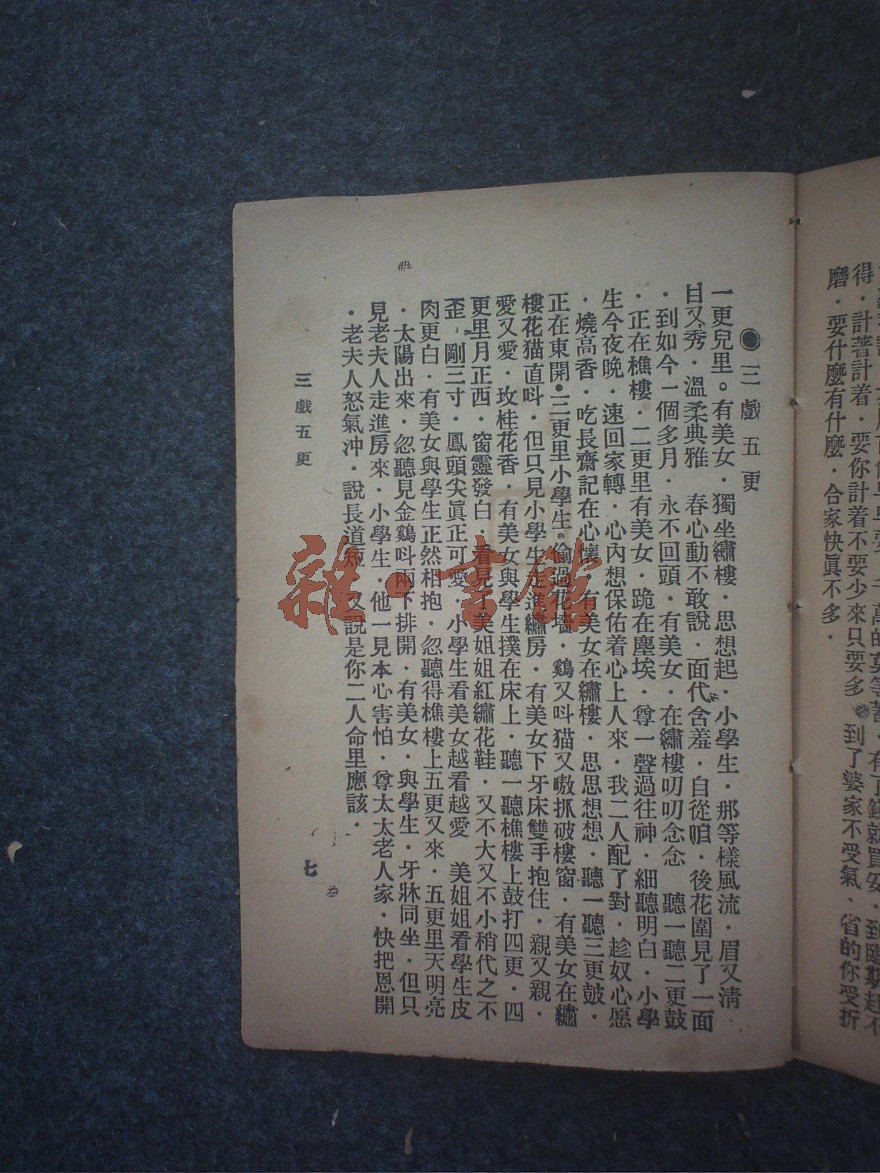 得．計著計着．要你計着不要少來只要多．到了婆家不受氣、省的你受折
磨．要什麼有什麼．合家快眞不多．
●三戲五更
一更兒里。有美女．獨坐繡樓．思想起．小學生．那等樣風流．眉又清
目又秀．溫柔典雅　春心動不敢說．面代含羞．自從咱．後花園見了一面
．到如今一個多月．永不回頭．有美女．在繡樓叨叨念念　聽一聽二更鼓
．正在樵樓．二更里有美女．跪在塵埃．尊一聲過往神．細聽明白．小學
生今夜晚．速回家轉．心內想保佑着心上人來．我二人配了對．趁奴心愿
．燒高香．吃長齋記在心懷．有美女在繡樓．思思想想．聽一聽三更鼓．
正在東開●三更里小學生。偷過花墻．鷄又呌猫又嗷抓破樓窗．有美女在繡
樓花猫直呌．但只見小學生走進繡房．有美女下牙床雙手抱住．親又親．
愛又愛．玫桂花香．有美女與學生撲在床上．聽一聽樵樓上鼓打四更．四
更里月正西．窗靈發白．看見了美姐姐紅繡花鞋．又不大又不小稍代之不
歪．剛三寸．鳳頭尖眞正可愛．小學生看美女越看越愛　美姐姐看學生皮
肉更白．有美女與學生正然相抱．忽聽得樵樓上五更又來．五更里天明亮
．太陽出來．忽聽見金鷄呌兩下排開．有美女．與學生．牙牀同坐．但只
見老夫人走進房來．小學生．他一見本心害怕．尊太太老人家．快把恩開
．老夫人怒氣沖．說長道短．又說是你二人命里應該．
三戲五更
七
雜·書館